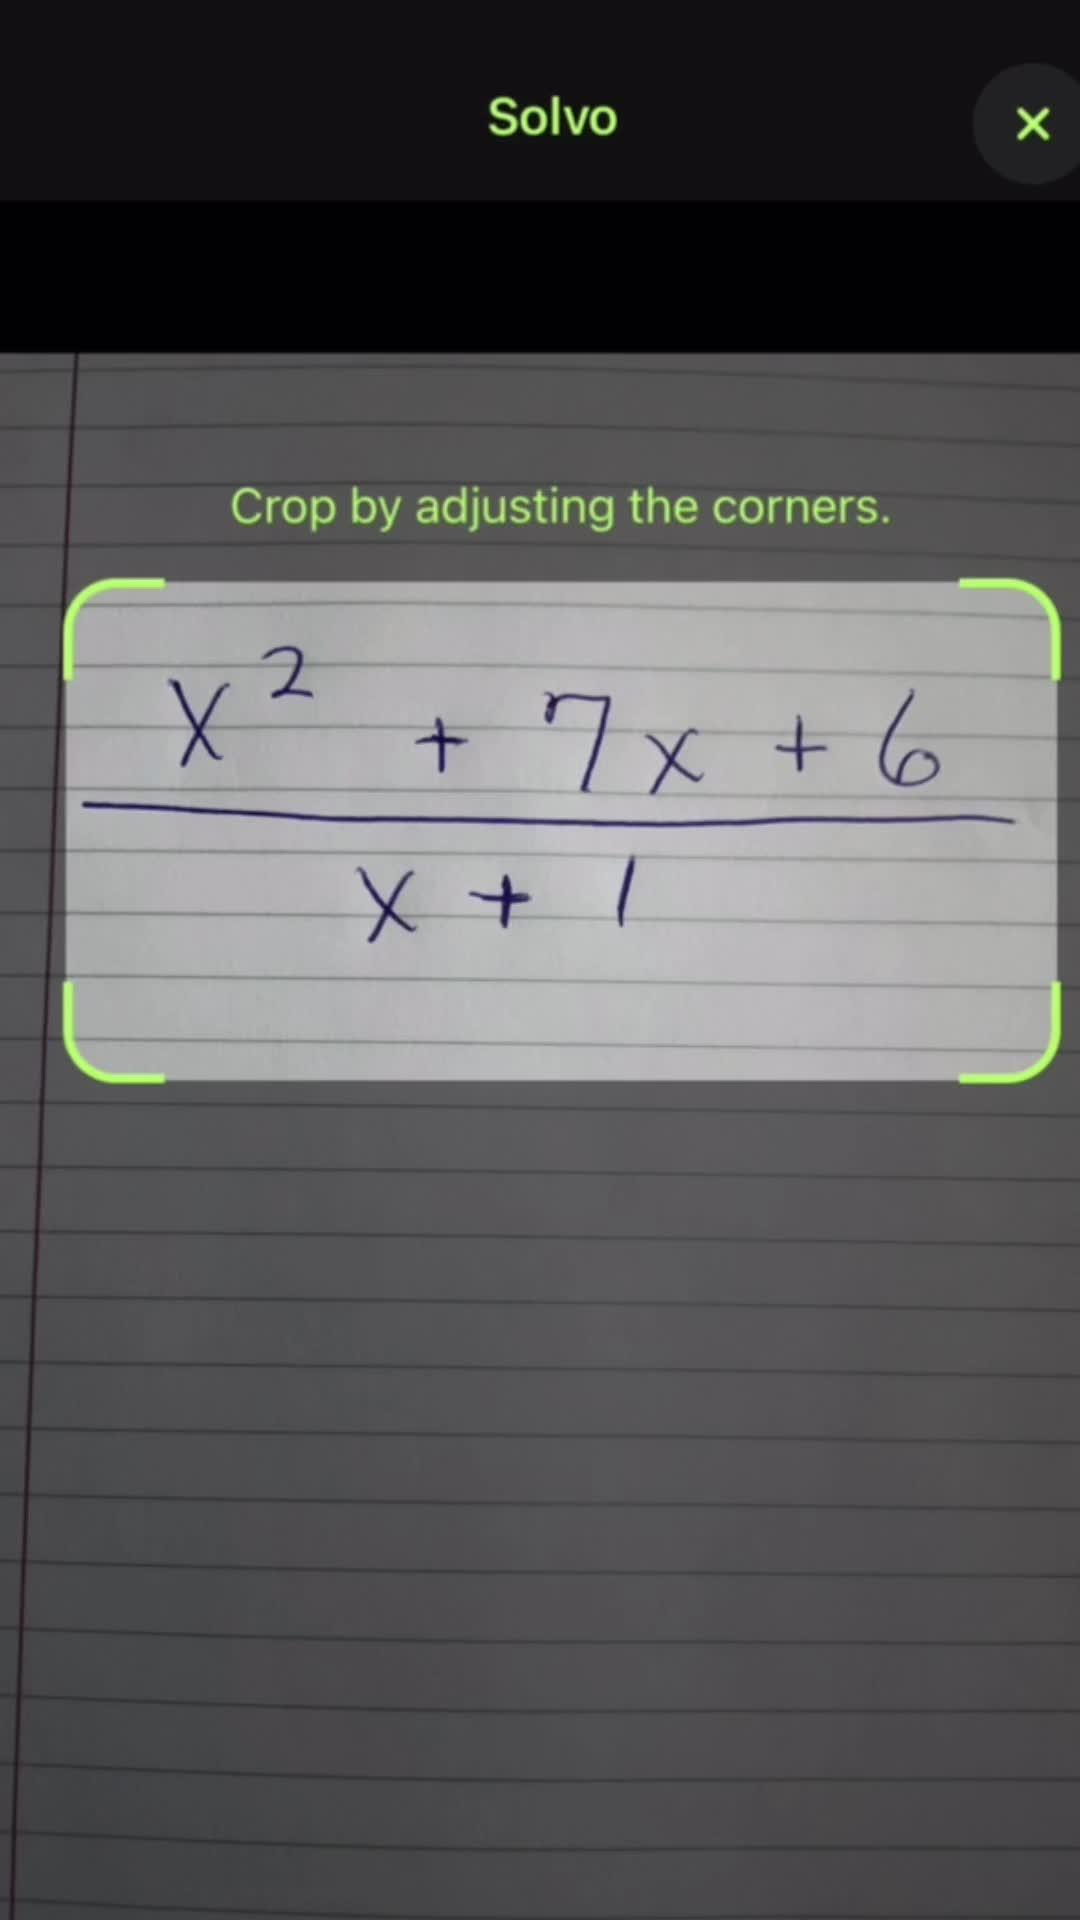 Solvo
×
Crop by adjusting the corners.
x² + 7x + 6
x + 1